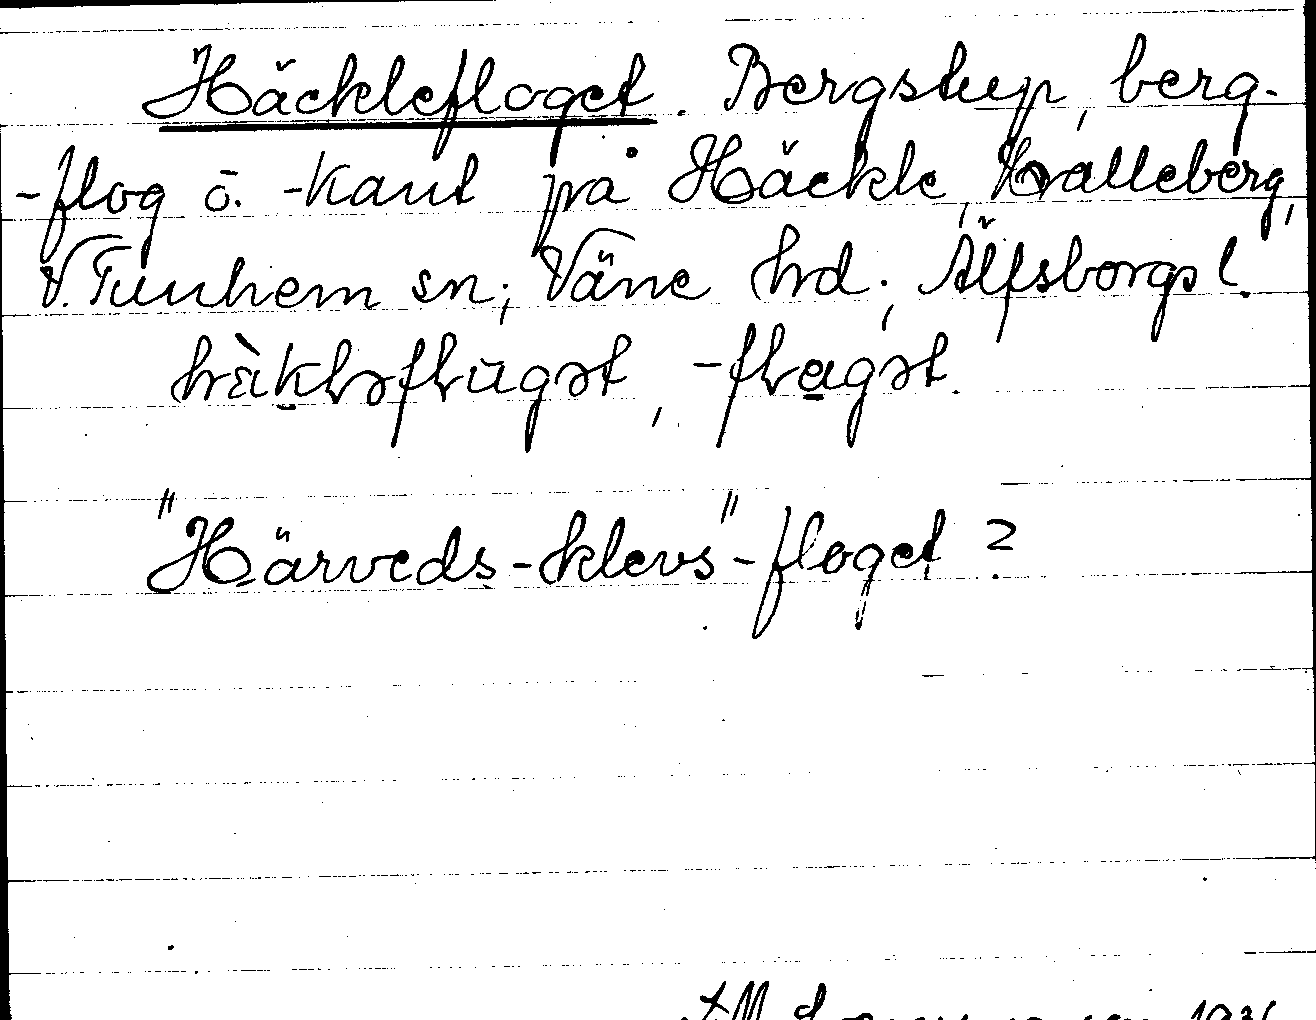 Häcklefloget. Bergstup, berg-
-flog o. -kant på Häckle, Halleberg,
V. Tunhem sn; Väne hrd; Älfsborgs l.
hà̤klǝflūgǝt, -flagǝt.
"Härveds-klevs"-floget?